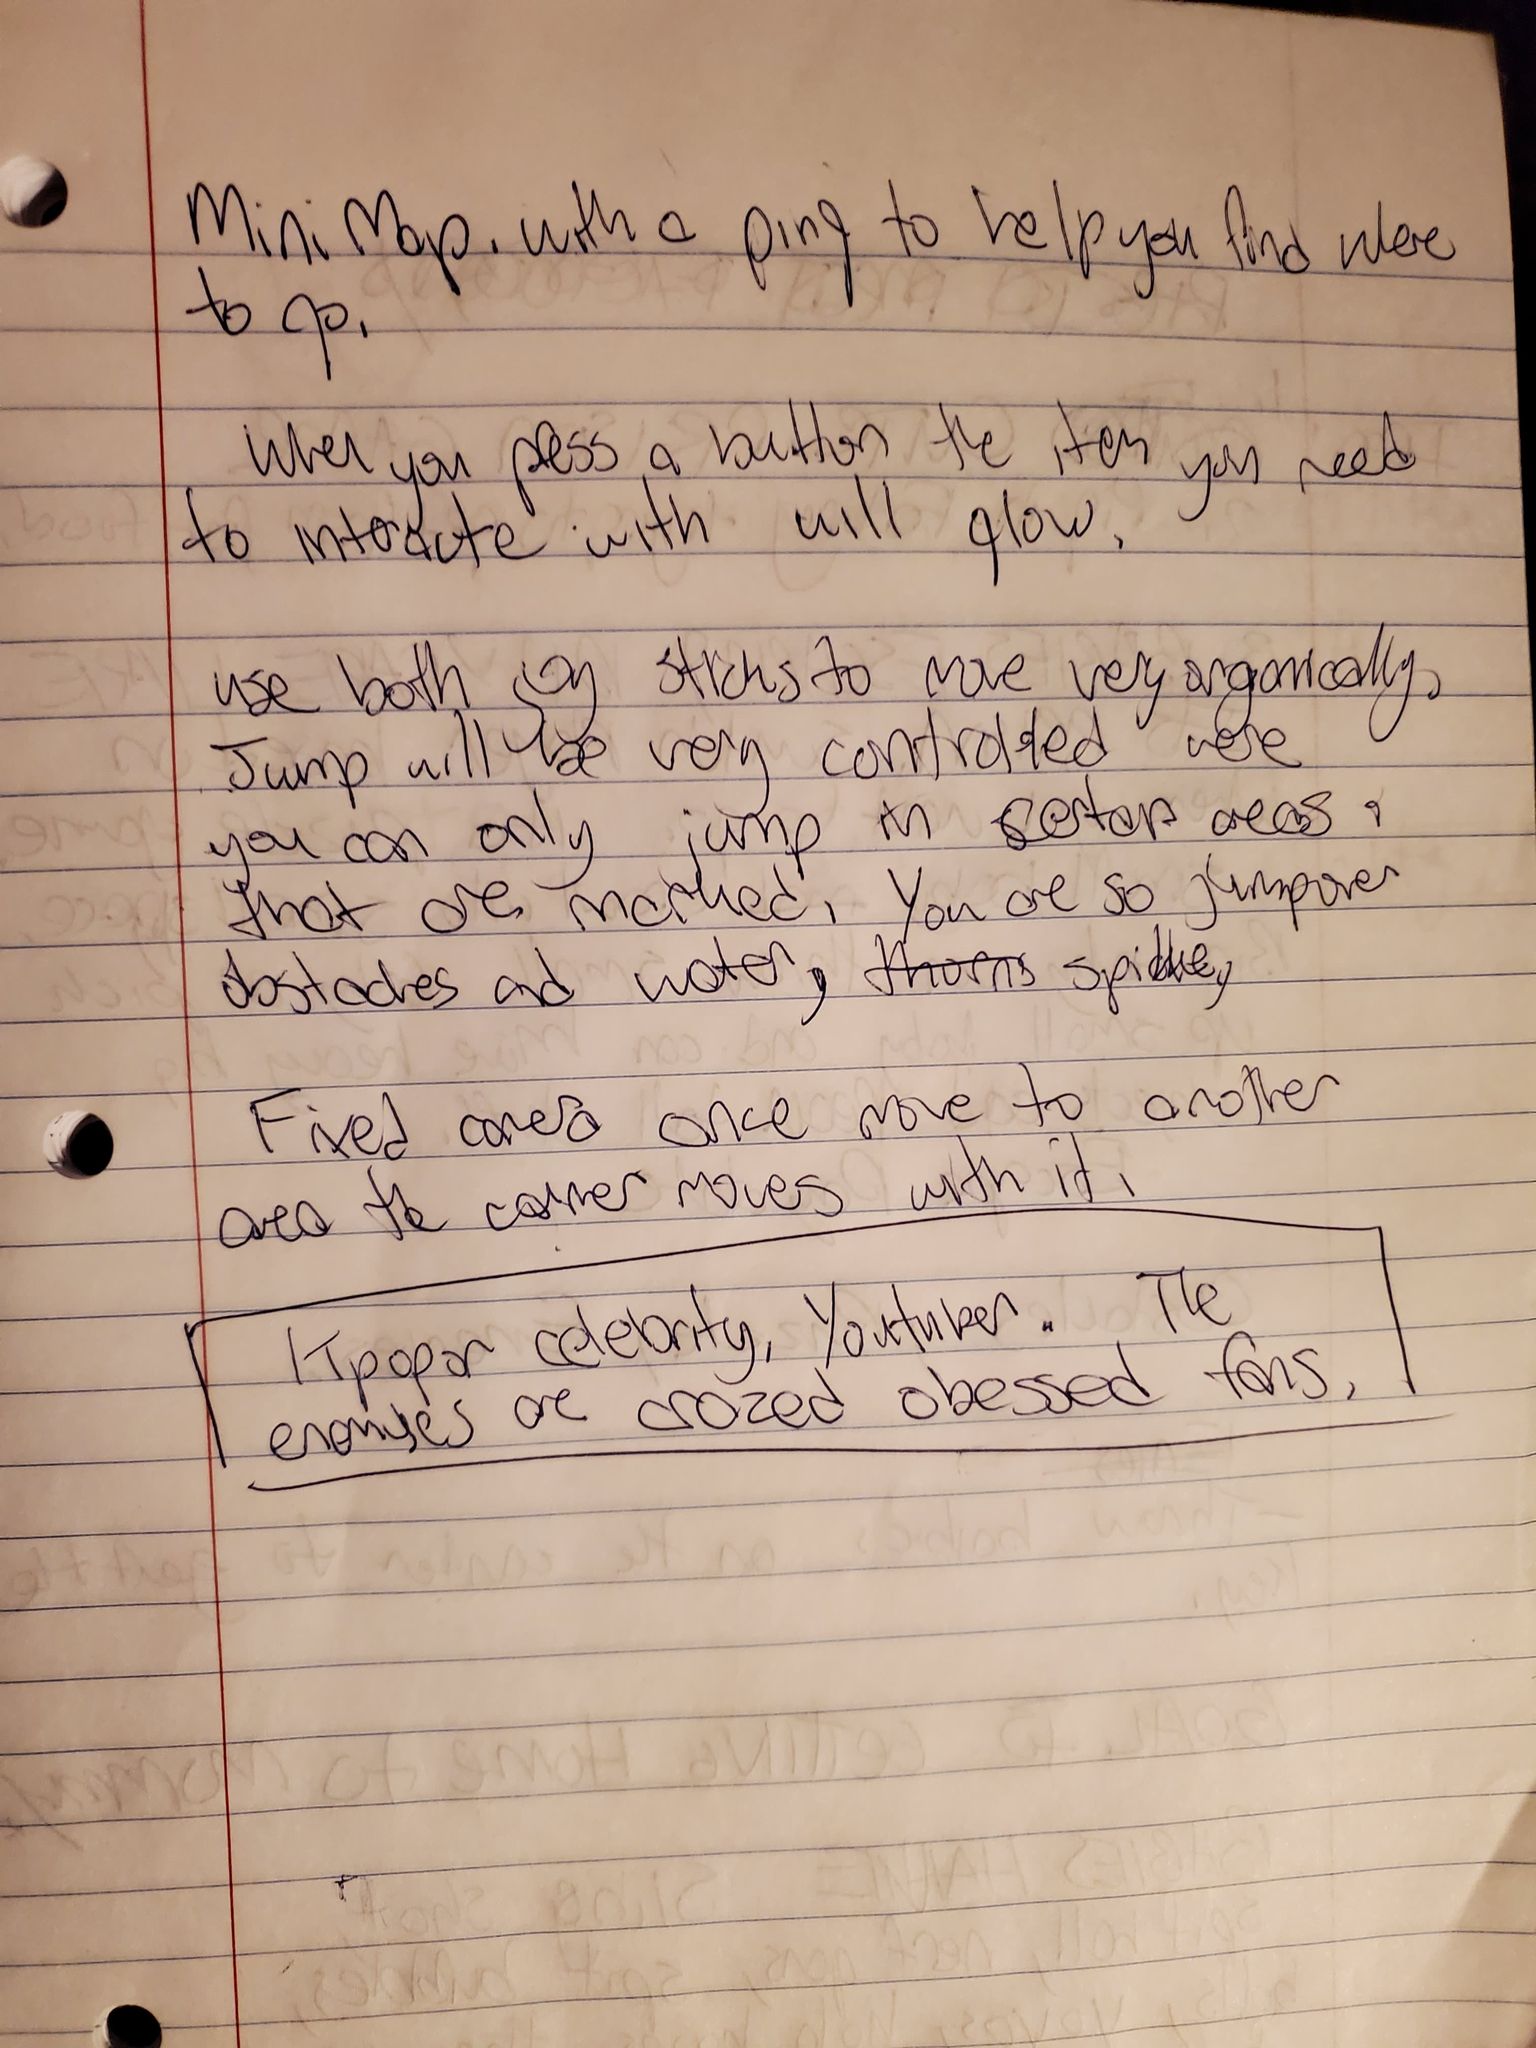 Mini Map. with a ping to help you find were
to go.
When you press a button the item you need
to interacte with will glow.
use both joy sticks to move very organically.
Jump will be very controlled were
you can only jump in certan areas,
that are marked. You are so jump over
obstacles and water, thorns
Fixed camera once move to another
area the camer moves with it.
Kpop or celebrity, Youtuber. The
enemyes are crazed obessed fans.
GOAL IS GETTING HOME to Mommy
BABIES HAVE Sling shot